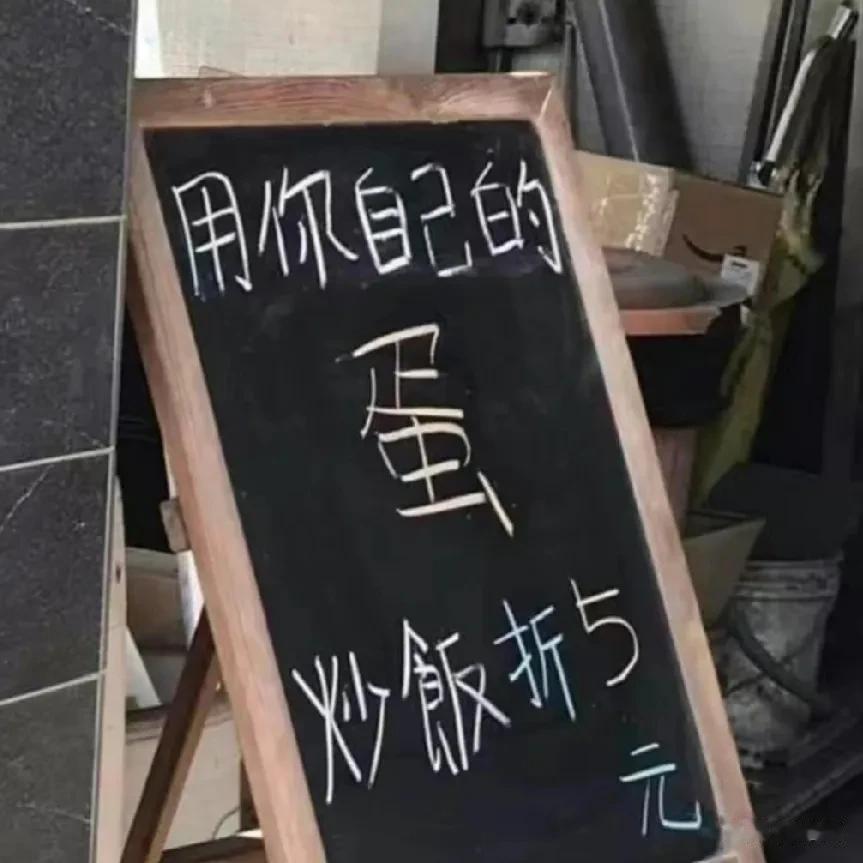 用你自己的
蛋
炒飯折5
元